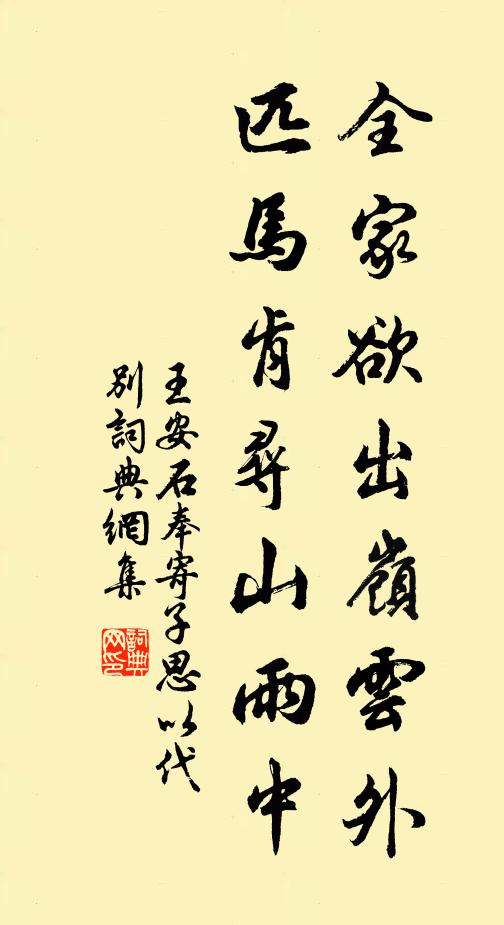 全家欲出嶺雲外
匹馬肯尋山雨中
王安石奉寄子思以代
別詞典網集
詞典网印